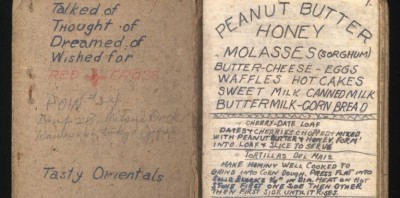 Talked of
Thought of
Dreamed of
Wished for
RED CROSS
POW #
Tasty Orientals
1.
PEANUT BUTTER
HONEY
MOLASSES (SORGHUM)
BUTTER-CHEESE-EGGS
WAFFLES HOT CAKES
SWEET MILK CANNED MILK
BUTTERMILK-CORN BREAD
CHERRY-DATE LOAF
DATES & CHERRIES CHOPPED & MIXED
WITH PEANUT BUTTER & HONEY. FORM
INTO LOAF & SLICE TO SERVE
TORTILLAS DEL MAIZ
MAKE HOMINY WELL COOKED TO
GRIND INTO CORN DOUGH. PRESS FLAT INTO
IN DIA. HEAT ON HOT
STONE FIRST ONE SIDE THEN OTHER
THEN FIRST SIDE UNTIL IT RISES